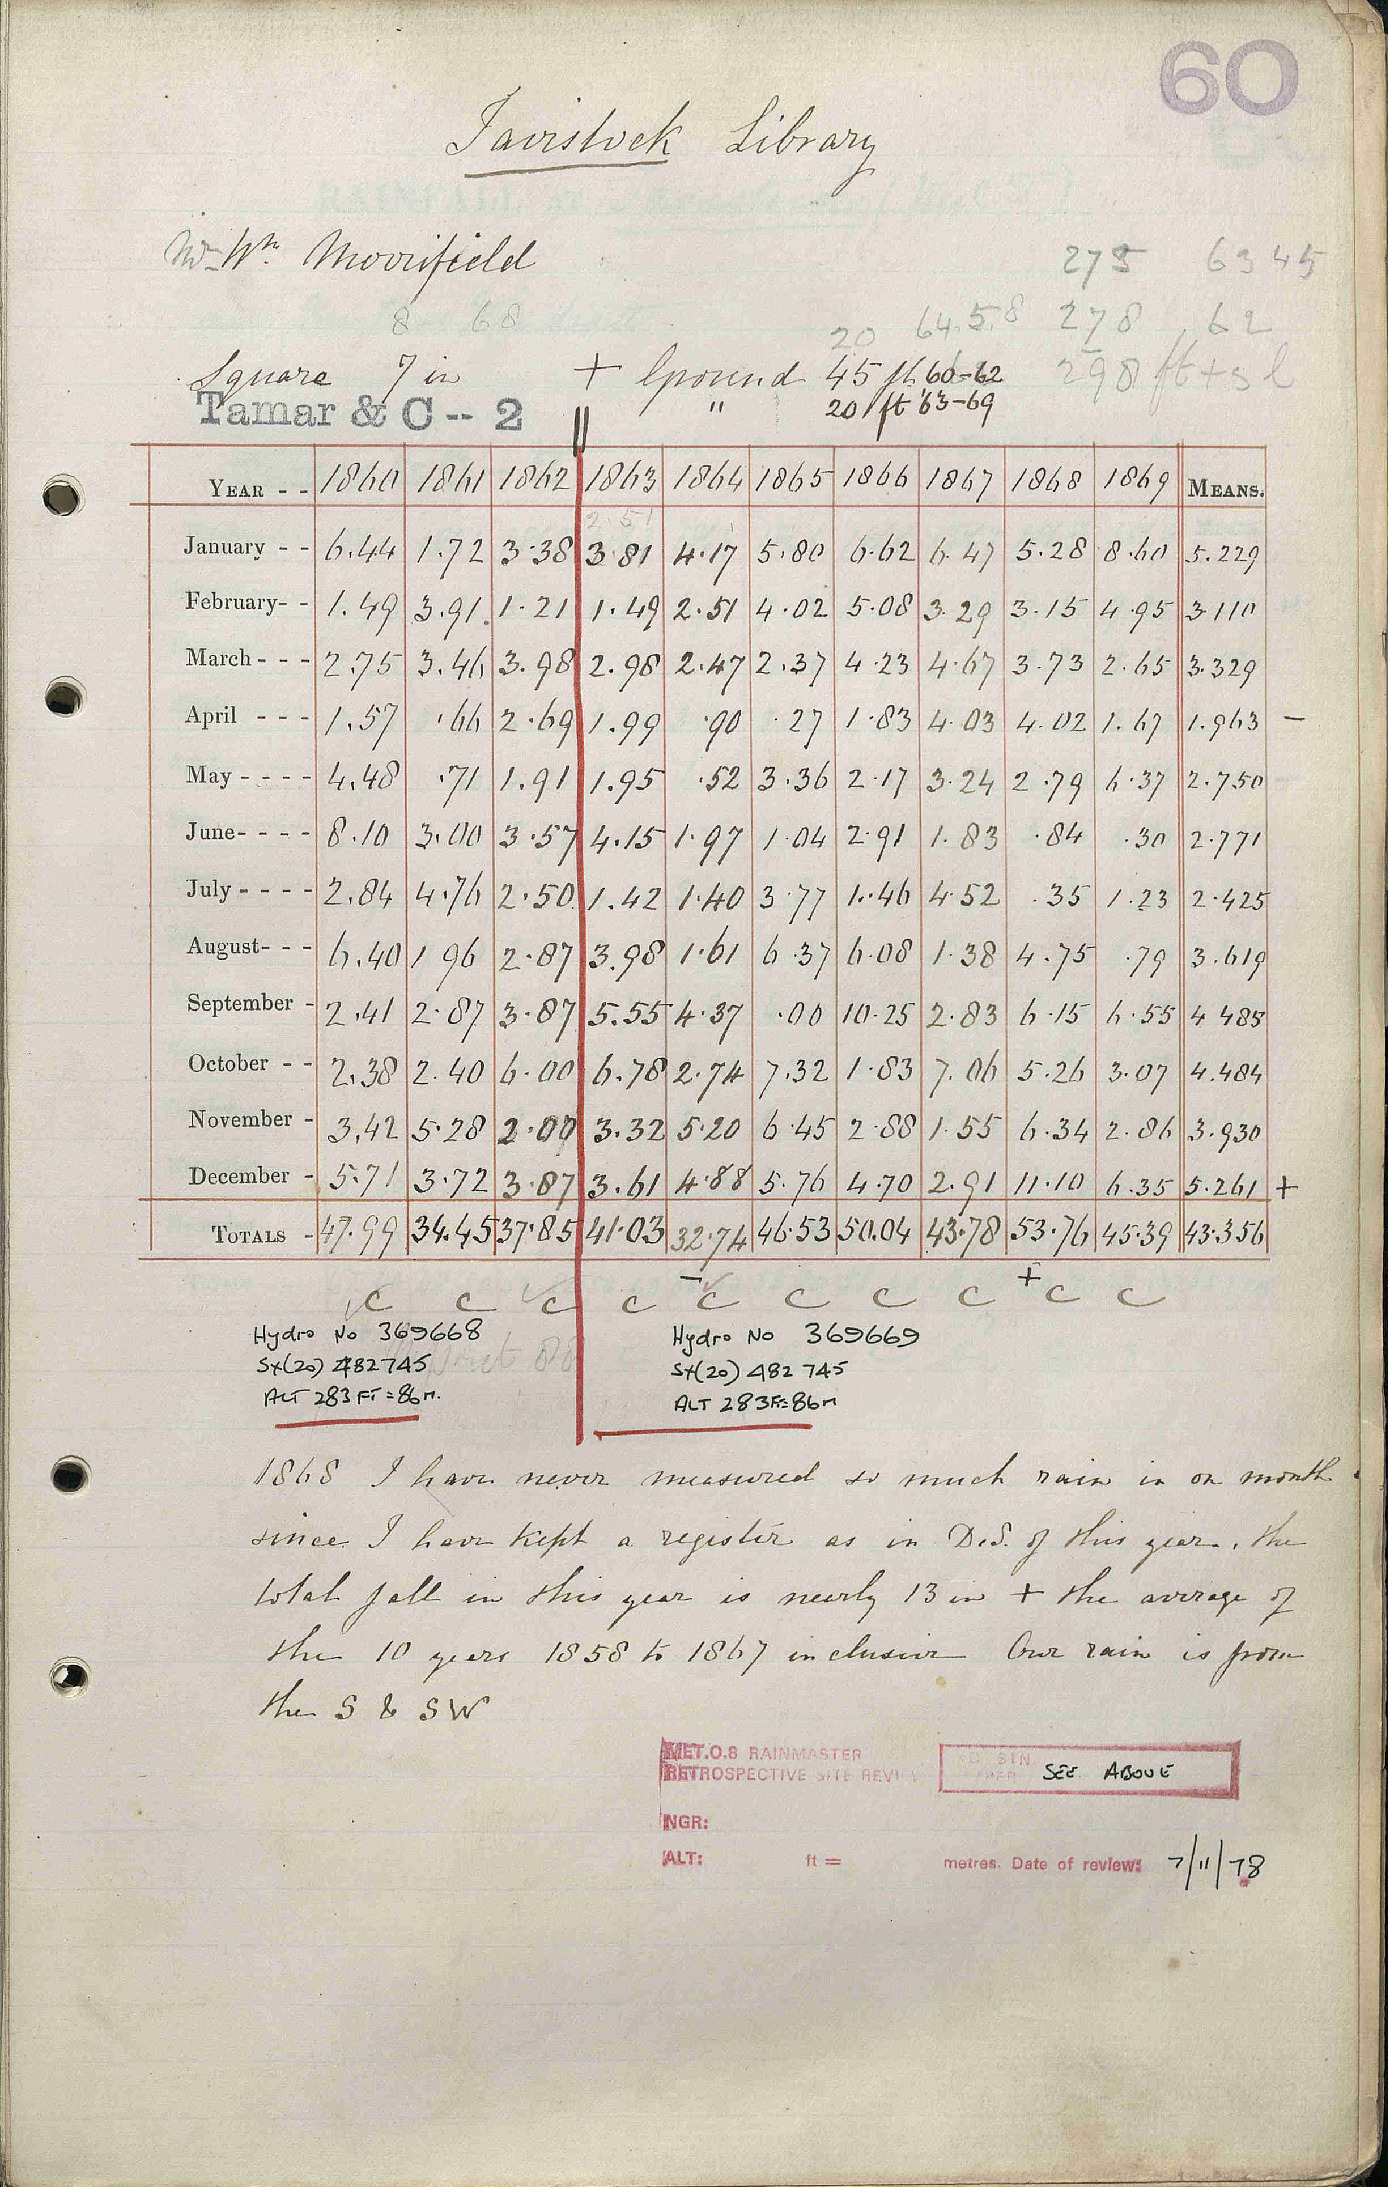 60
Tavistock Library
Mr Wm. Merrifield
275 63 45
8 68
20 64.58 278 62
Square 7 in + Ground 45 ft 60-62 298 ft + sl
Tamar & C -- 2 " 20 ft '63-69
YEAR - - 1860 1861 1862 1863 1864 1865 1866 1867 1868 1869 MEANS.
2 51
January - - 6.44 1.72 3.38 3.81 4.17 5.80 6.62 6.47 5.28 8.60 5.229
February- - 1.49 3.91 1.21 1.49 2.51 4.02 5.08 3.29 3.15 4.95 3.110
March - - - 2.75 3.46 3.98 2.98 2.47 2.37 4.23 4.67 3.73 2.65 3.329
April - - - 1.57 .66 2.69 1.99 .90 .27 1.83 4.03 4.02 1.67 1.963 –
May - - - - 4.48 .71 1.91 1.95 .52 3.36 2.17 3.24 2.79 6.37 2.750
June- - - - 8.10 3.00 3.57 4.15 1.97 1.04 2.91 1.83 .84 .30 2.771
July - - - - 2.84 4.76 2.50 1.42 1.40 3.77 1.46 4.52 .35 1.23 2.425
August- - - 6.40 1.96 2.87 3.98 1.61 6.37 6.08 1.38 4.75 .79 3.619
September - 2.41 2.87 3.87 5.55 4.37 .00 10.25 2.83 6.15 6.55 4.485
October - - 2.38 2.40 6.00 6.78 2.74 7.32 1.83 7.06 5.26 3.07 4.484
November - 3.42 5.28 2.00 3.32 5.20 6.45 2.88 1.55 6.34 2.86 3.930
December - 5.71 3.72 3.87 3.61 4.88 5.76 4.70 2.91 11.10 6.35 5.261 +
TOTALS - 47.99 34.45 37.85 41.03 32.74 46.53 50.04 43.78 53.76 45.39 43.356
– +
c c c c c c c c c c
Hydro No 369668 Hydro No 369669
SX(20) 482745 SX(20) 482 745
ALT 283 FT = 86m. ALT 283F=86m
1868 I have never measured so much rain in on month
since I have kept a register as in Dec. of this year, the
total fall in this year is nearly 13 in + the average of
the 10 years 1858 to 1867 inclusive Our rain is from
the S & SW
MET.O.8 RAINMASTER
RETROSPECTIVE SITE REVIEW SEE ABOVE
NGR:
ALT: ft = metres. Date of review: 7/11/78